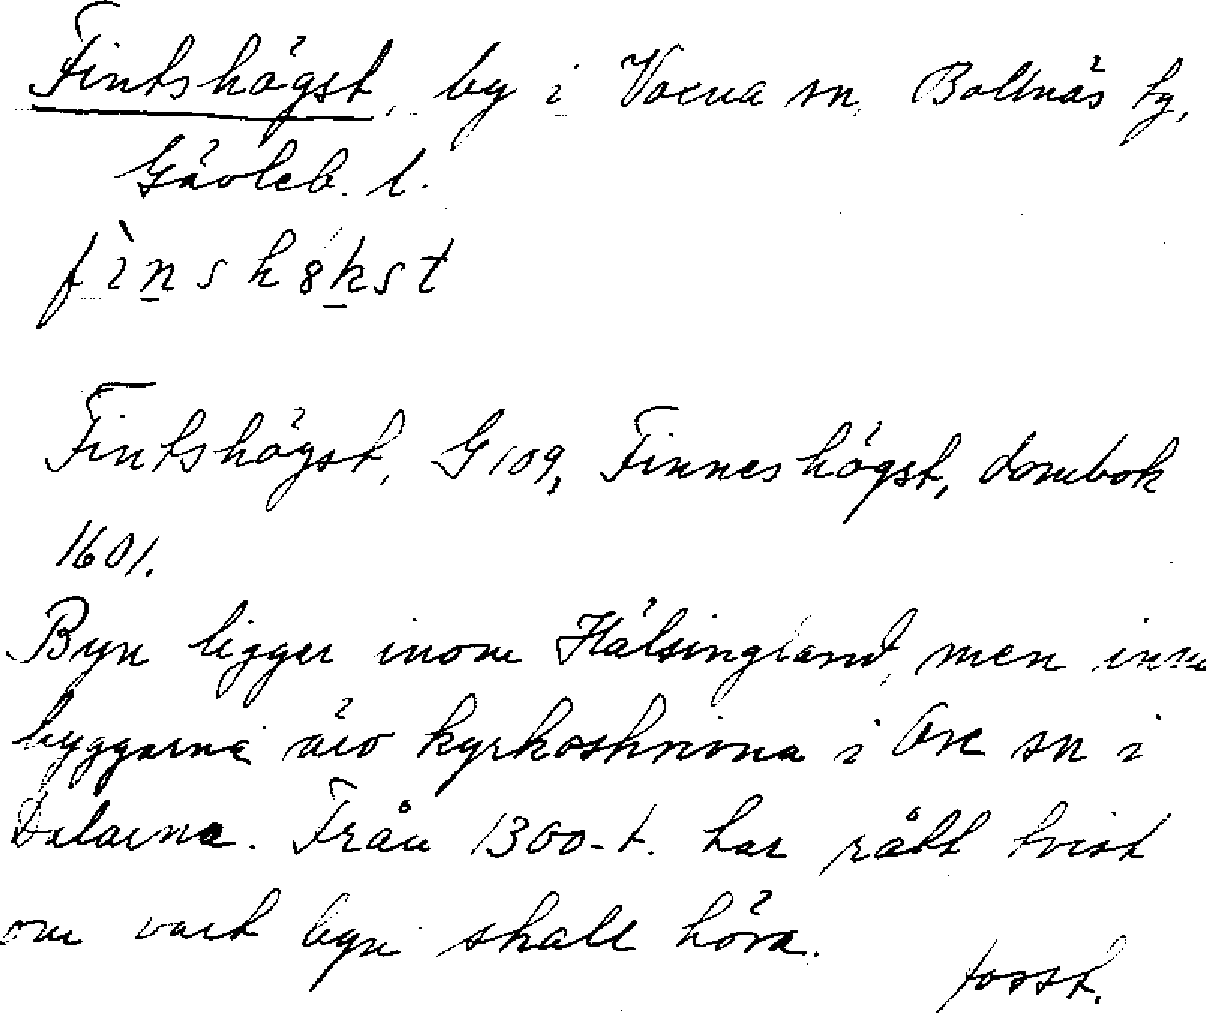 Fintshögst, by i Voxna sn, Bollnäs tg,
Gävleb. l.
fìnshøkst
Fintshögst, G 109, Finneshögst, dombok
1601.
Byn ligger inom Hälsingland, men inne
byggarna äro kyrkoskrivna i Ore sn i
Dalarna. Från 1300-t. har rått tvist
om vart byn skall höra.
forst.